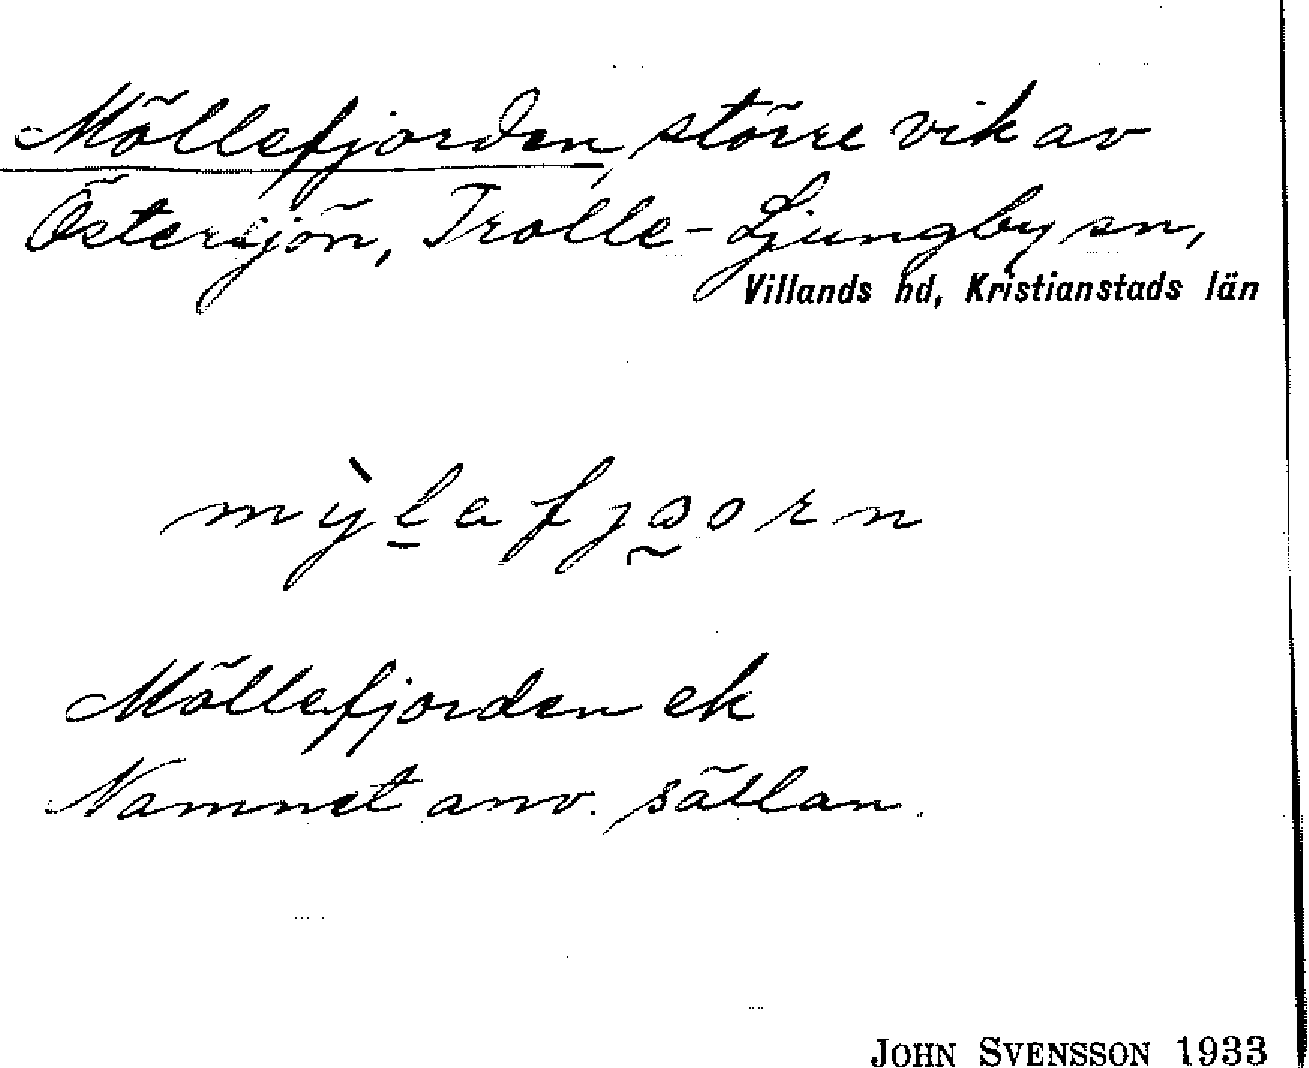 Möllefjorden, större vik av
Östersjön, Trolle-Ljungby sn,
Villands hd, Kristianstads län
Möllefjorden ek
Namnet anv. sällan.
JOHN SVENSSON 1933